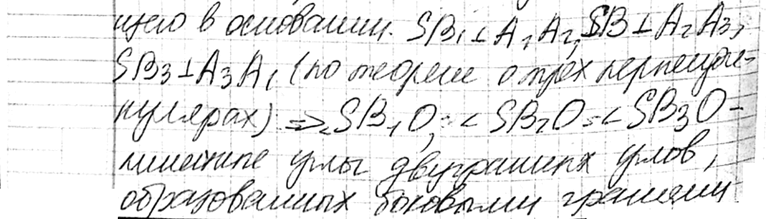 щего в основании. SB₁⊥A₁A₂, SB⊥A₂A₃,
SB₃⊥A₃A₁ (по теореме о трёх перпенди-
кулярах) => ∠SB₁O, = ∠SB₂O = ∠SB₃O -
линейные углы двугранных углов,
образованных боковыми гранями